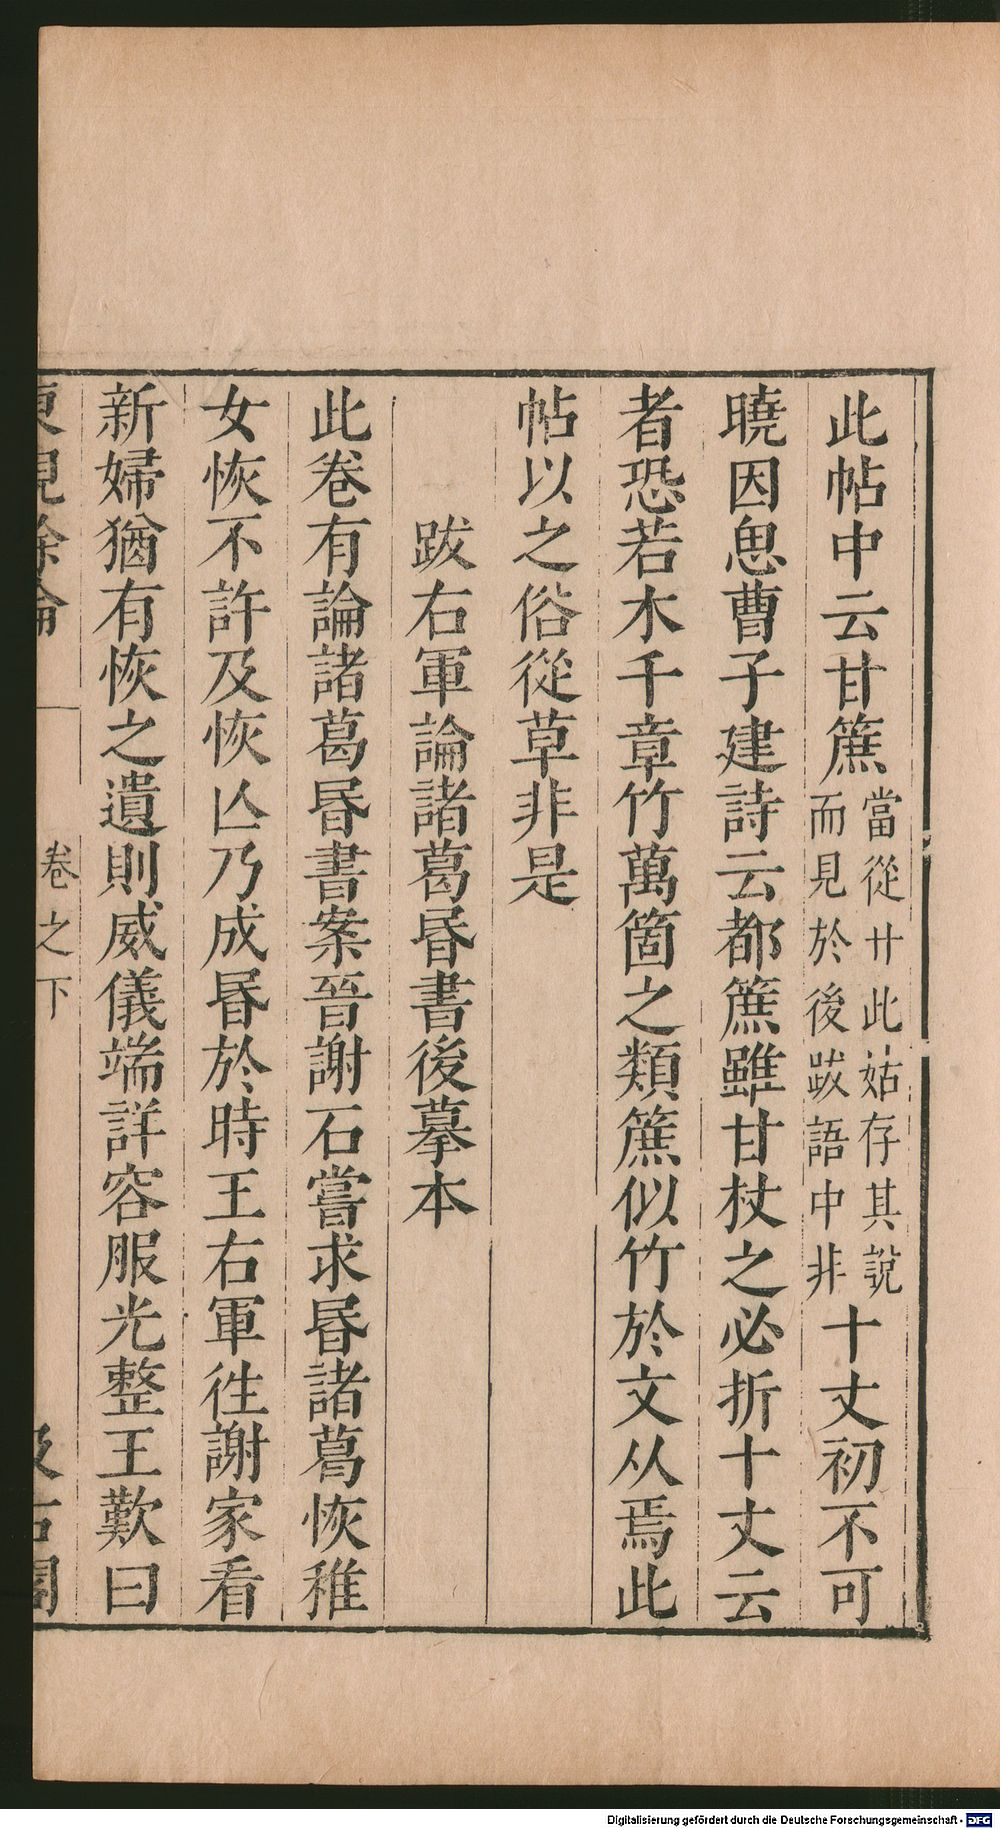 此帖中云甘䉀當從廾此姑存其說而見於後跋語中非十丈初不可
曉因思曹子建詩云都䉀雖甘杖之必折十丈云
者恐若木千章竹萬箇之類䉀似竹於文从焉此
帖以之俗從草非是
跋右軍論諸葛昬書後摹本
此卷有論諸葛昬書案晉謝石嘗求昬諸葛恢稚
女恢不許及恢亾乃成昬於時王右軍徃謝家看
新婦猶有恢之遺則威儀端詳容服光整王歎曰
東觀餘論 卷之下 汲古閣
Digitalisierung gefördert durch die Deutsche Forschungsgemeinschaft - DFG